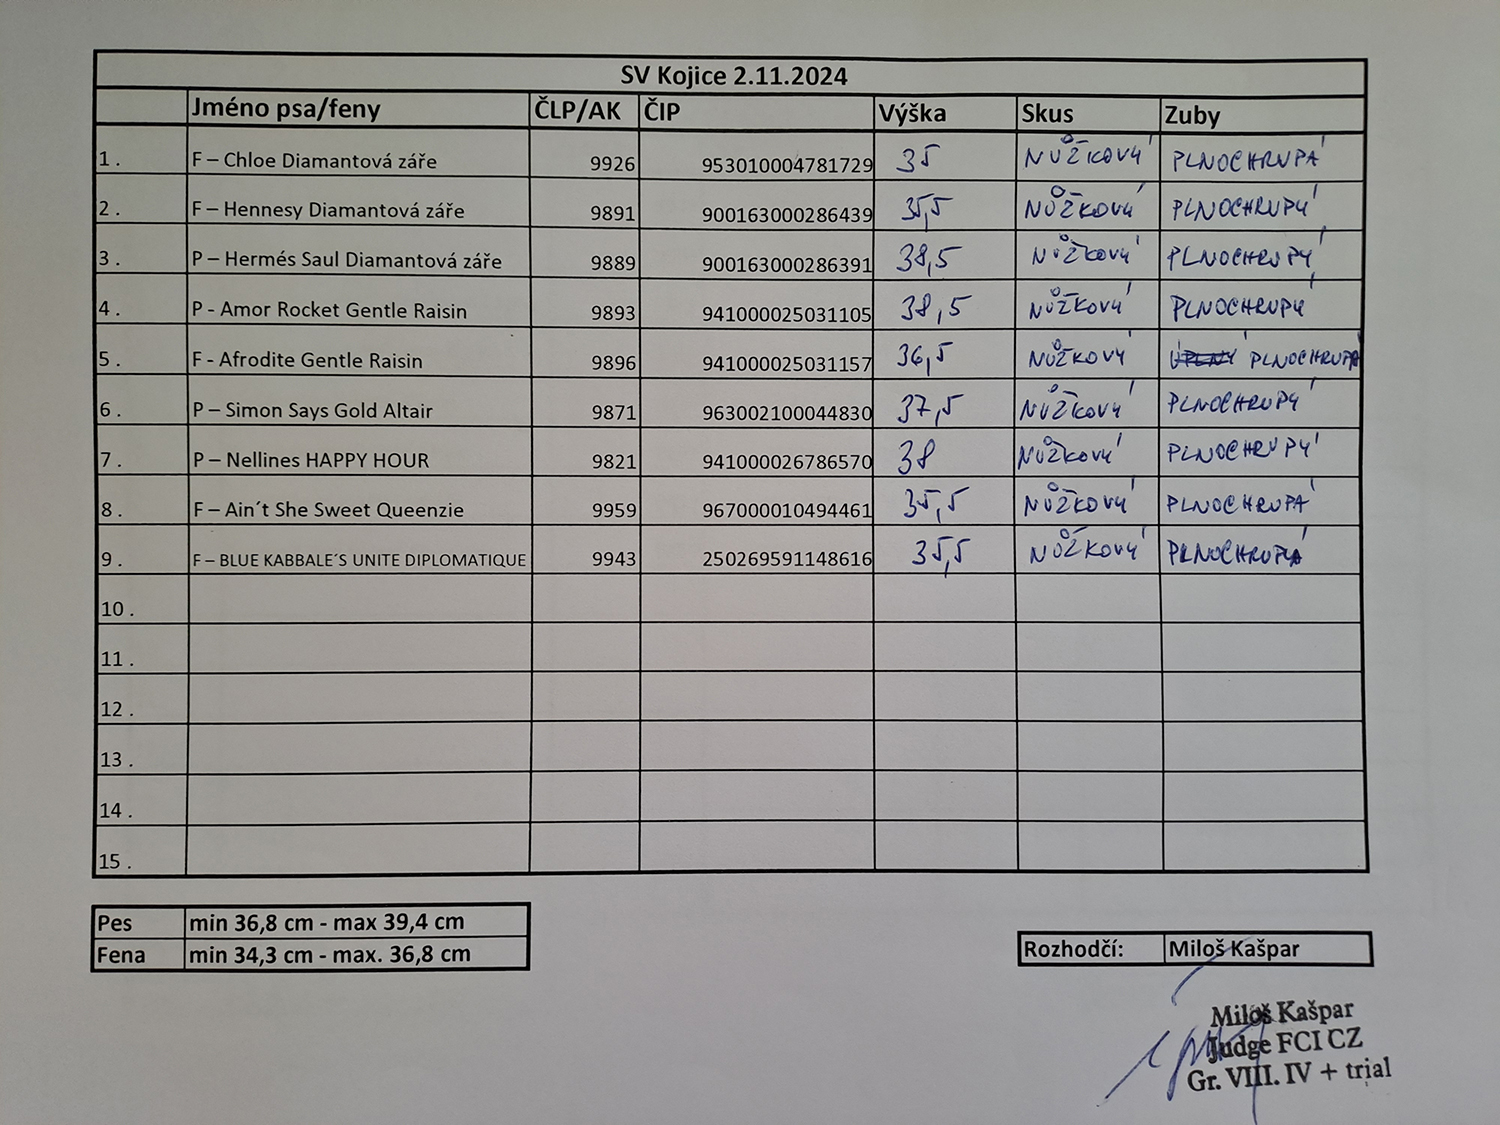 SV Kojice 2.11.2024
Jméno psa/feny ČLP/AK ČIP Výška Skus Zuby
1 . F – Chloe Diamantová záře 9926 953010004781729 35 NŮŽKOVÝ PLNOCHRUPÁ
2 . F – Hennesy Diamantová záře 9891 900163000286439 35,5 NŮŽKOVÝ PLNOCHRUPÝ
3 . P – Hermés Saul Diamantová záře 9889 900163000286391 38,5 NŮŽKOVÝ PLNOCHRUPÝ
4 . P - Amor Rocket Gentle Raisin 9893 941000025031105 38,5 NŮŽKOVÝ PLNOCHRUPÝ
5 . F - Afrodite Gentle Raisin 9896 941000025031157 36,5 NŮŽKOVÝ PLNOCHRUPÁ
6 . P – Simon Says Gold Altair 9871 963002100044830 37,5 NŮŽKOVÝ PLNOCHRUPÝ
7 . P – Nellines HAPPY HOUR 9821 941000026786570 38 NŮŽKOVÝ PLNOCHRUPÝ
8 . F – Ain´t She Sweet Queenzie 9959 967000010494461 35,5 NŮŽKOVÝ PLNOCHRUPÁ
9 . F – BLUE KABBALE´S UNITE DIPLOMATIQUE 9943 250269591148616 35,5 NŮŽKOVÝ PLNOCHRUPÁ
10 .
11 .
12 .
13 .
14 .
15 .
Pes min 36,8 cm - max 39,4 cm
Fena min 34,3 cm - max. 36,8 cm
Rozhodčí: Miloš Kašpar
Miloš Kašpar
Judge FCI CZ
Gr. VIII. IV + trial